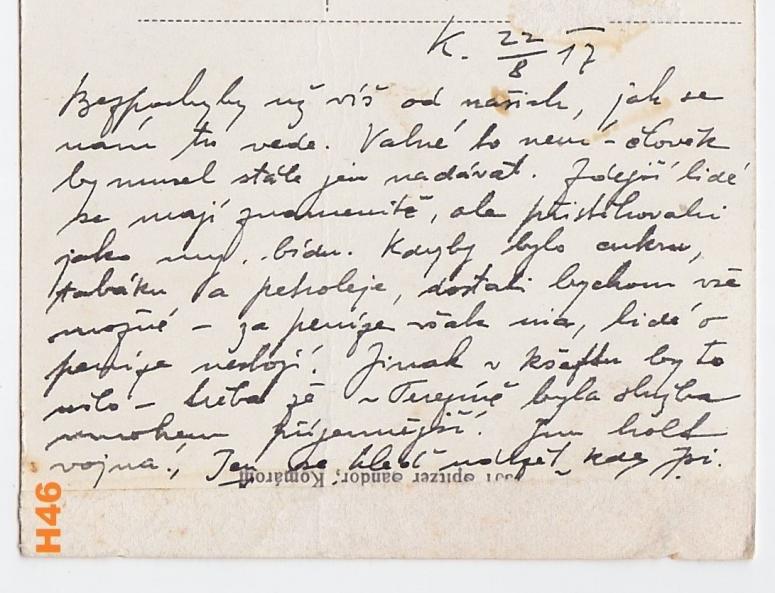 K. 22/8 17
Bezpochyby už víš od našich, jak se
nám tu vede. Valné to není – člověk
by musel stále jen nadávat. Zdejší lidé
se mají znamenitě, ale přistěhovalci
jako my, bídu. Kdyby bylo cukru,
tabáku a petroleje, dostali bychom vše
možné – za peníze však nic, lidé o
peníze nestojí. Jinak v kšeftu by to
ušlo – třeba že v Terejně byla služba
mnohem příjemnější. Jen holt
vojna! Jen se hleď
Spitzer Sándor, Komárom
H46